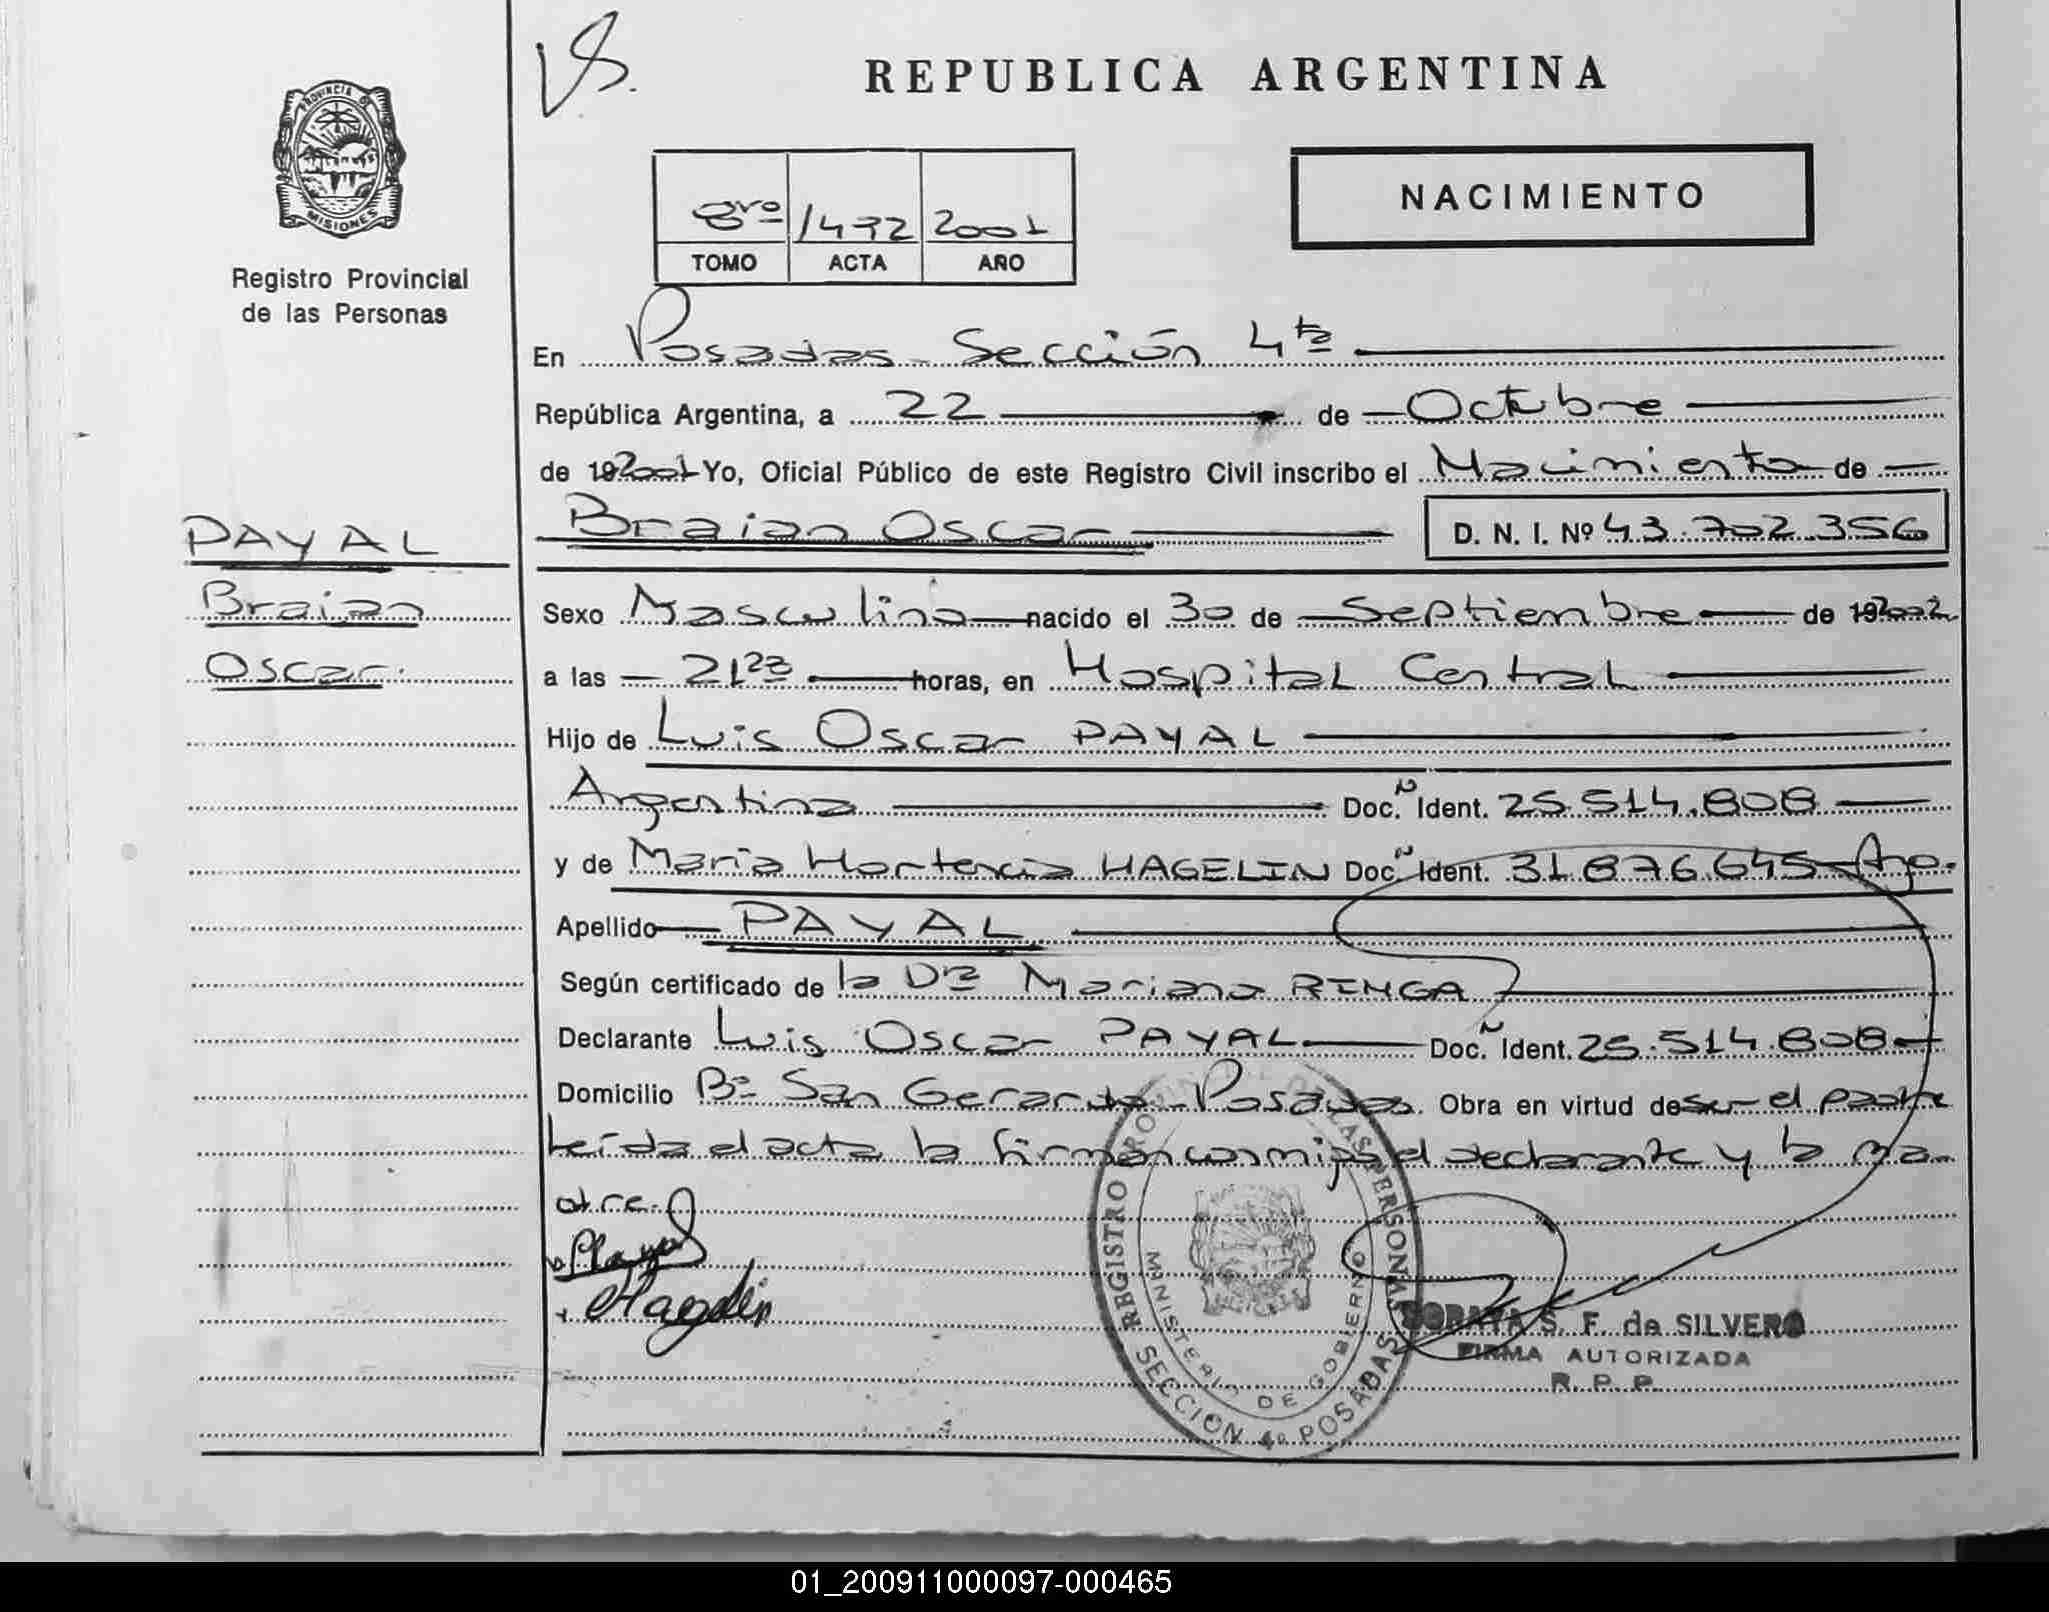 VS.
REPUBLICA ARGENTINA
PROVINCIA DE
MISIONES
Registro Provincial
de las Personas
8vo 1472 2001
TOMO ACTA AÑO
NACIMIENTO
En Posadas - Sección 4ta
República Argentina, a 22 de Octubre
de 192001 Yo, Oficial Público de este Registro Civil inscribo el Nacimiento de
PAYAL
Braian
Oscar.
Braian Oscar D. N. I. Nº 43.702.356
Sexo Masculino nacido el 30 de Septiembre de 19
a las 21 horas, en Hospital Central
Hijo de Luis Oscar PAYAL
Argentina Doc. N Ident. 25.514.808
y de María Hortencia HAGELIN Doc. N Ident. 31.876.645 Arg.
Apellido PAYAL
Según certificado de la Dra Mariana RINGA
Declarante Luis Oscar PAYAL Doc. N Ident. 25.514.808
Domicilio Bº San Gerardo - Posadas. Obra en virtud de ser el padre
Leída el acta la firman conmigo el declarante y la ma-
dre.
Hagelin
REGISTRO PROVINCIAL DE LAS PERSONAS
MINISTERIO DE GOBIERNO
SECCION 4º POSADAS
SORAYA S. F. de SILVERO
FIRMA AUTORIZADA
R. P. P.
01_200911000097-000465